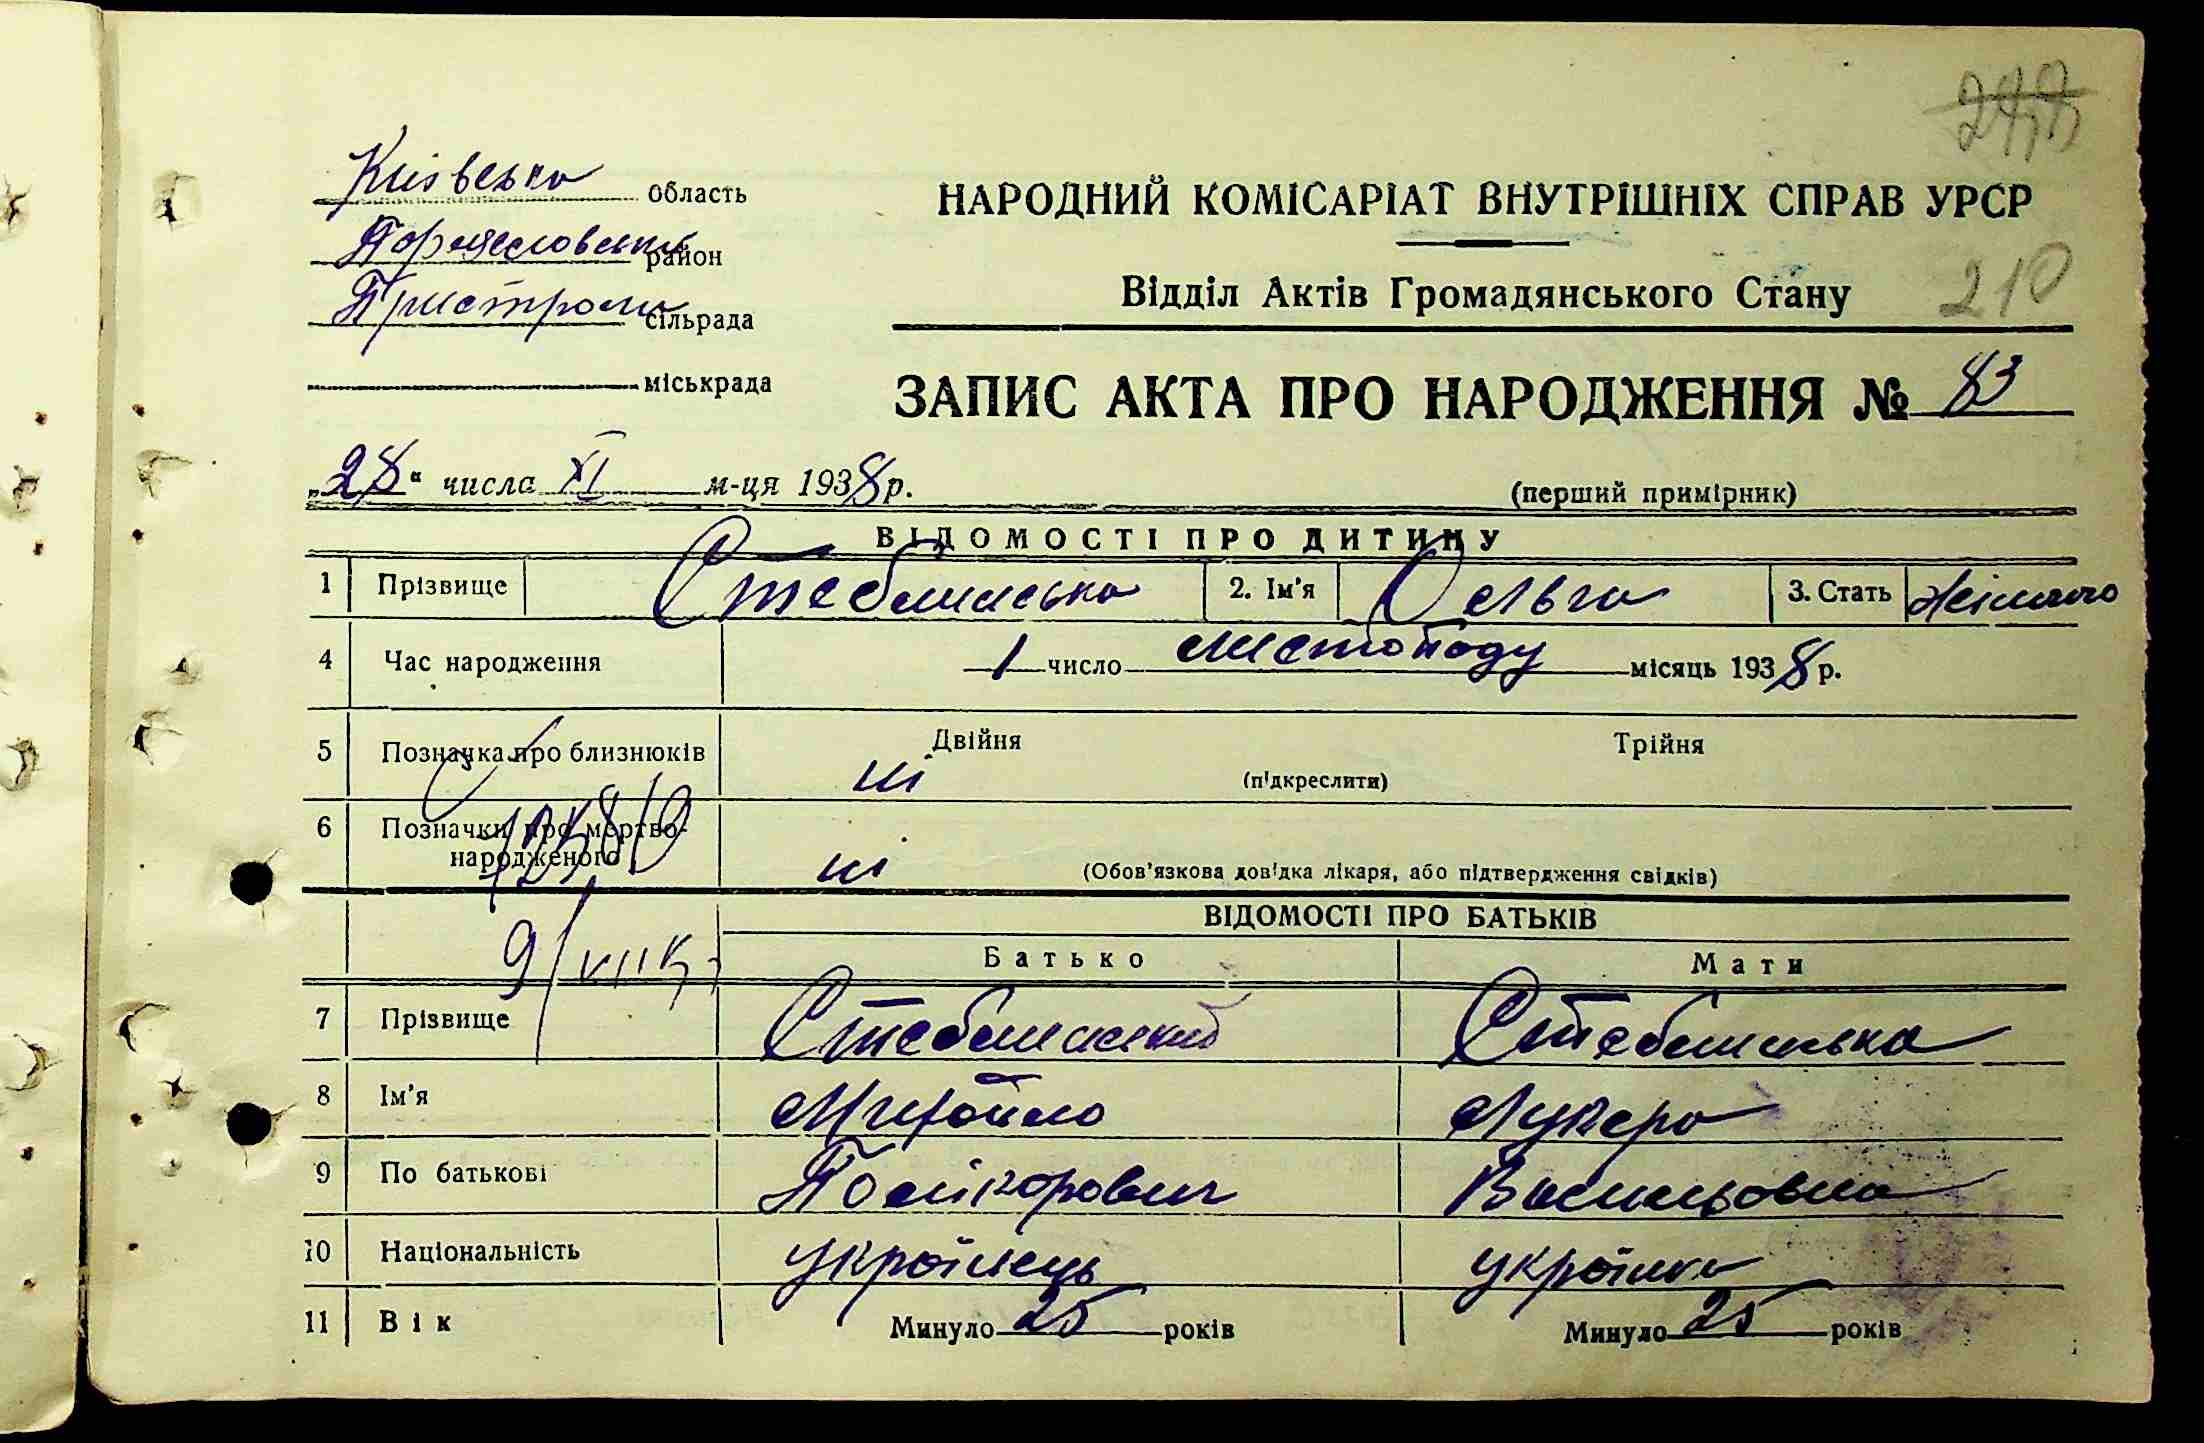 277
Київська область
НАРОДНИЙ КОМІСАРІАТ ВНУТРІШНІХ СПРАВ УРСР
район
Пристроми сільрада
Відділ Актів Громадянського Стану 210
міськрада
ЗАПИС АКТА ПРО НАРОДЖЕННЯ № 83
„28“ числа XI м-ця 1938 р.
(перший примірник)
ВІДОМОСТІ ПРО ДИТИНУ
1 Прізвище Стеблинська 2. Ім'я Ольга 3. Стать жіноча
4 Час народження 1 число листопаду місяць 1938 р.
5 Позначка про близнюків ні Двійня Трійня
(підкреслити)
6 Позначки про мертво-
народженого ні (Обов'язкова довідка лікаря, або підтвердження свідків)
ВІДОМОСТІ ПРО БАТЬКІВ
Батько Мати
7 Прізвище Стеблинський Стеблинська
8 Ім'я Михайло Лукера
9 По батькові Полікарович Васильовна
10 Національність українець українка
11 Вік Минуло 25 років Минуло 25 років